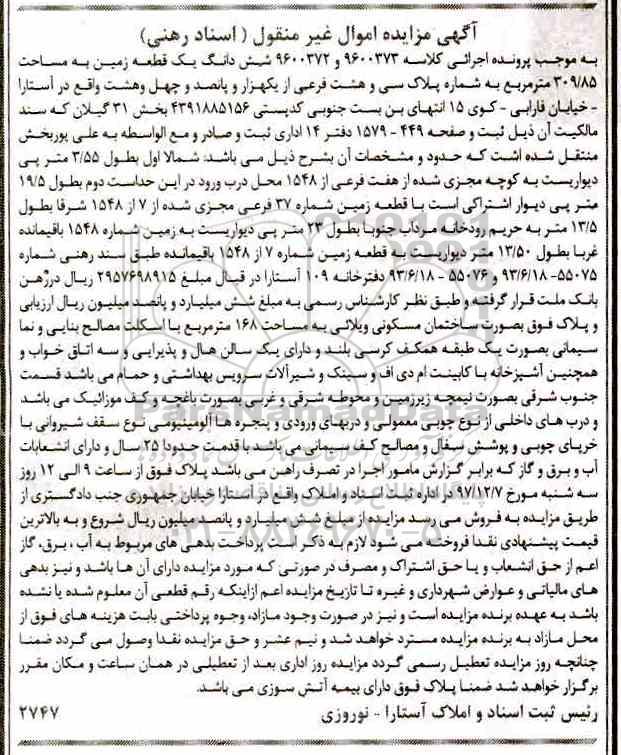 آگهی مزایده اموال غیر منقول ( اسناد رهنی)
به موجب پرونده اجرائی کلاسه ۹۶۰۰۳۷۳ و ۹۶۰۰۳۷۲ شش دانگ یک قطعه زمین به مساحت
۳۰۹/۸۵ مترمربع به شماره پلاک سی و هشت فرعی از یکهزار و پانصد و چهل وهشت واقع در آستارا
- خیابان فارابی - کوی ۱۵ انتهای بن بست جنوبی کدپستی ۴۳۹۱۸۸۵۱۵۶ بخش ۳۱ گیلان که سند
مالکیت آن ذیل ثبت و صفحه ۴۴۹ - ۱۵۷۹ دفتر ۱۴ اداری ثبت و صادر و مع الواسطه به علی پوربخش
منتقل شده است که حدود و مشخصات آن بشرح ذیل می باشد: شمالا اول بطول ۳/۵۵ متر پی
دیواریست به کوچه مجزی شده از هفت فرعی از ۱۵۴۸ محل درب ورود در این حداست دوم بطول ۱۹/۵
متر پی دیوار اشتراکی است با قطعه زمین شماره ۳۷ فرعی مجزی شده از ۷ از ۱۵۴۸ شرقا بطول
۱۳/۵ متر به حریم رودخانه مرداب جنوبا بطول ۲۳ متر پی دیواریست به زمین شماره ۱۵۴۸ باقیمانده
غربا بطول ۱۳/۵۰ متر دیواریست به قطعه زمین شماره ۷ از ۱۵۴۸ باقیمانده طبق سند رهنی شماره
۵۵۰۷۵- ۹۳/۶/۱۸ و ۵۵۰۷۶ - ۹۳/۶/۱۸ دفترخانه ۱۰۹ آستارا در قبال مبلغ ۲۹۵۷۶۹۸۹۱۵ ریال دررهن
بانک ملت قرار گرفته و طبق نظر کارشناس رسمی به مبلغ شش میلیارد و پانصد میلیون ریال ارزیابی
و پلاک فوق بصورت ساختمان مسکونی ویلائی به مساحت ۱۶۸ مترمربع با اسکلت مصالح بنایی و نما
سیمانی بصورت یک طبقه همکف کرسی بلند و دارای یک سالن هال و پذیرایی و سه اتاق خواب و
همچنین آشپزخانه با کابینت ام دی اف و سینک و شیرآلات سرویس بهداشتی و حمام می باشد قسمت
جنوب شرقی بصورت نیمچه زیرزمین و محوطه شرقی و غربی بصورت باغچه و کف موزائیک می باشد
و درب های داخلی از نوع چوبی معمولی و دربهای ورودی و پنجره ها آلومینیومی نوع سقف شیروانی با
خرپای چوبی و پوشش سفال و مصالح کف سیمانی می باشد با قدمت حدودا ۲۵ سال و دارای انشعابات
آب و برق و گاز که برابر گزارش مامور اجرا در تصرف راهن می باشد پلاک فوق از ساعت ۹ الی ۱۲ روز
سه شنبه مورخ ۹۷/۱۲/۷ در اداره ثبت اسناد و املاک واقع در آستارا خیابان جمهوری جنب دادگستری از
طریق مزایده به فروش می رسد مزایده از مبلغ شش میلیارد و پانصد میلیون ریال شروع و به بالاترین
قیمت پیشنهادی نقدا فروخته می شود لازم به ذکر است پرداخت بدهی های مربوط به آب ، برق، گاز
اعم از حق انشعاب و یا حق اشتراک و مصرف در صورتی که مورد مزایده دارای آن ها باشد و نیز بدهی
های مالیاتی و عوارض شهرداری و غیره تا تاریخ مزایده اعم ازاینکه رقم قطعی آن معلوم شده یا نشده
باشد به عهده برنده مزایده است و نیز در صورت وجود مازاد، وجوه پرداختی بابت هزینه های فوق از
محل مازاد به برنده مزایده مسترد خواهد شد و نیم عشر و حق مزایده نقدا وصول می گردد ضمنا
چنانچه روز مزایده تعطیل رسمی گردد مزایده روز اداری بعد از تعطیلی در همان ساعت و مکان مقرر
برگزار خواهد شد ضمنا پلاک فوق دارای بیمه آتش سوزی می باشد.
رئیس ثبت اسناد و املاک آستارا - نوروزی ۲۷۴۷
ParsNamadData